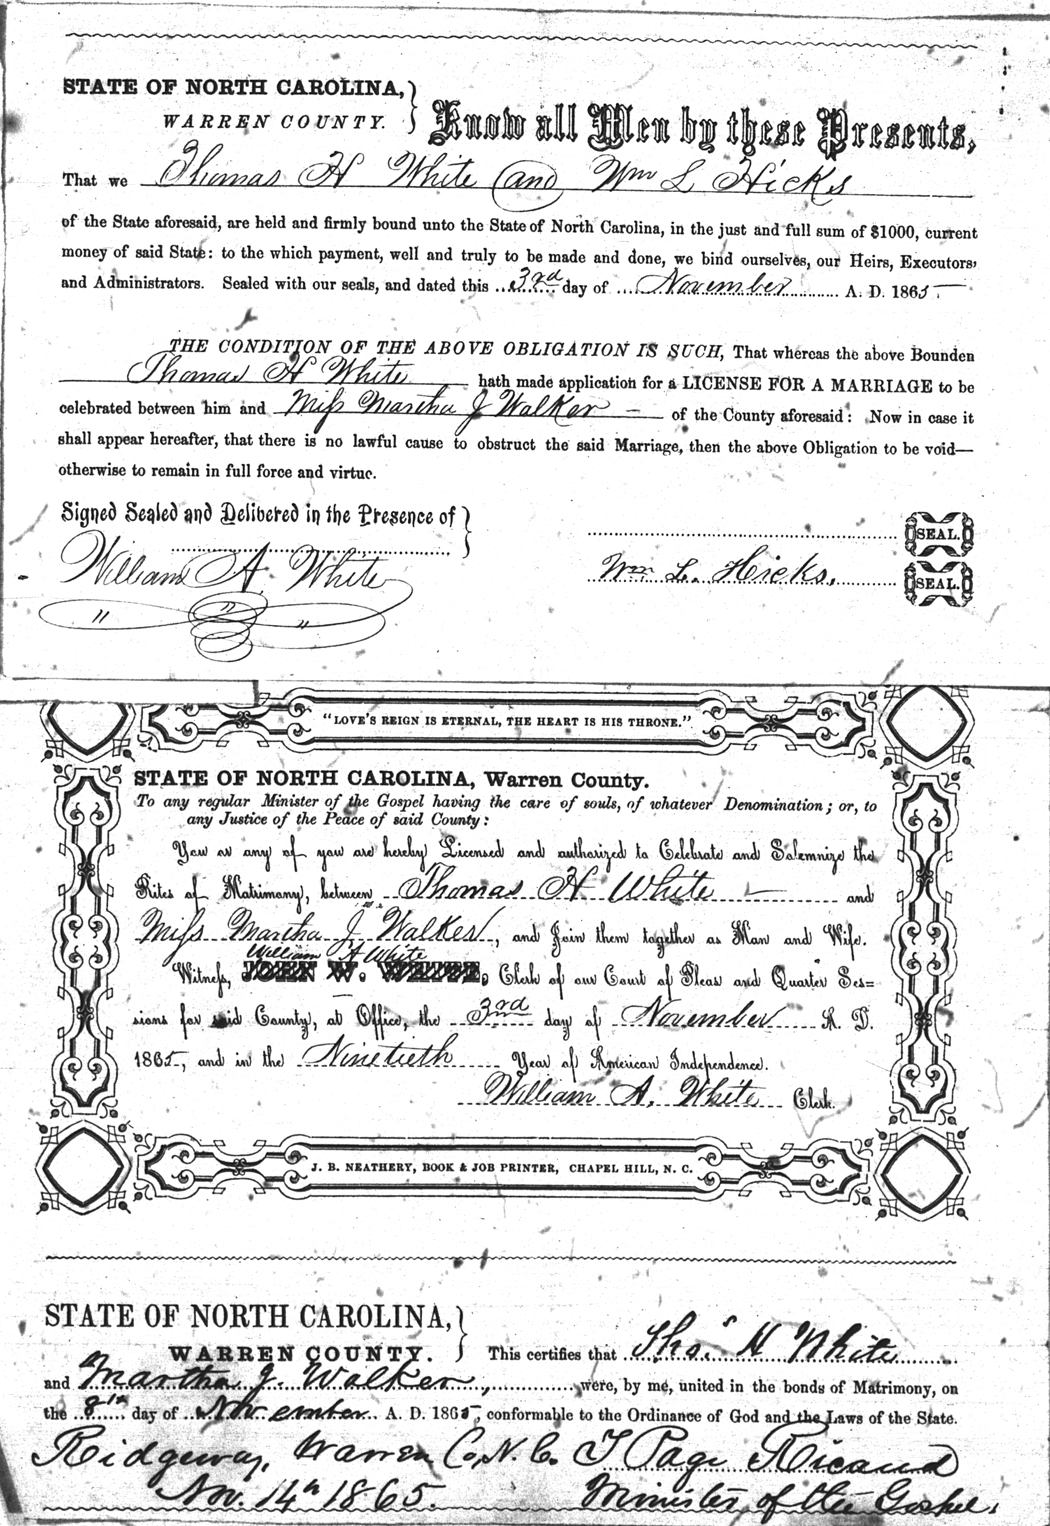 STATE OF NORTH CAROLINA,
WARREN COUNTY.
Know all Men by these Presents,
That we Thomas H White and Wm L Hicks
of the State aforesaid, are held and firmly bound unto the State of North Carolina, in the just and full sum of $1000, current
money of said State: to the which payment, well and truly to be made and done, we bind ourselves, our Heirs, Executors,
and Administrators. Sealed with our seals, and dated this 3rd day of November A. D. 1865
THE CONDITION OF THE ABOVE OBLIGATION IS SUCH, That whereas the above Bounden
Thomas H White hath made application for a LICENSE FOR A MARRIAGE to be
celebrated between him and Miss Martha J Walker — of the County aforesaid: Now in case it
shall appear hereafter, that there is no lawful cause to obstruct the said Marriage, then the above Obligation to be void—
otherwise to remain in full force and virtue.
Signed Sealed and Delibered in the Presence of
SEAL.
William A. White
Wm L. Hicks.
SEAL.
" " "
"LOVE'S REIGN IS ETERNAL, THE HEART IS HIS THRONE."
STATE OF NORTH CAROLINA, Warren County.
To any regular Minister of the Gospel having the care of souls, of whatever Denomination; or, to
any Justice of the Peace of said County:
You or any of you are hereby Licensed and authorized to Celebrate and Solemnize the
Rites of Matrimony, between Thomas H White — and
Miss Martha J Walker, and Join them together as Man and Wife.
William A White
Witness, JOHN W. WHITE, Clerk of our Court of Pleas and Quarter Ses=
sions for said County, at Office, the 3rd day of November A. D.
1865, and in the Ninetieth Year of American Independence.
William A. White Clerk.
J. B. NEATHERY, BOOK & JOB PRINTER, CHAPEL HILL, N. C.
STATE OF NORTH CAROLINA,
WARREN COUNTY.
This certifies that Thos. H White
and Martha J. Walker, were, by me, united in the bonds of Matrimony, on
the 8th day of November A. D. 1865, conformable to the Ordinance of God and the Laws of the State.
Ridgeway, Warren Co, N. C. T Page Ricaud
Nov. 14th 1865. Minister of the Gospel.